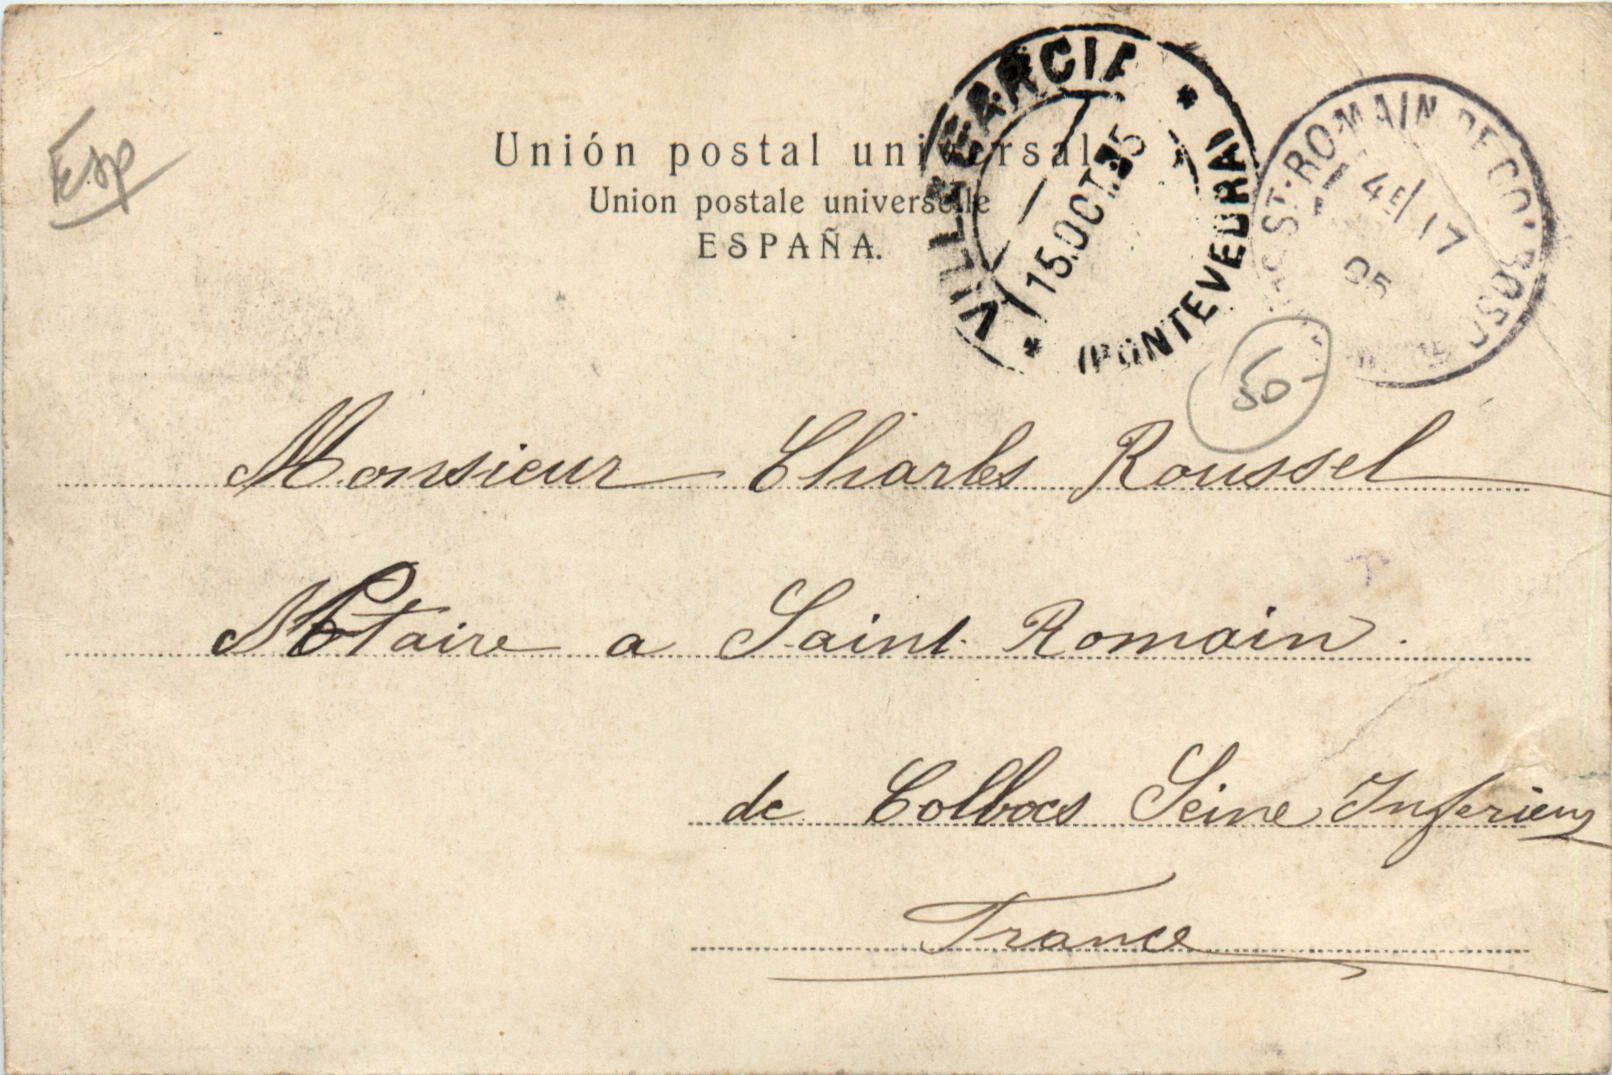 Esp
Unión postal universal
Union postale universelle
ESPAÑA.
VILLAGARCIA
15.OCT.05
(PONTEVEDRA)
ST-ROMAIN DE COLBOSC
17
05
50-
Monsieur Charles Roussel
Notaire a Saint Romain.
de Colbocs Seine Inferieur
France